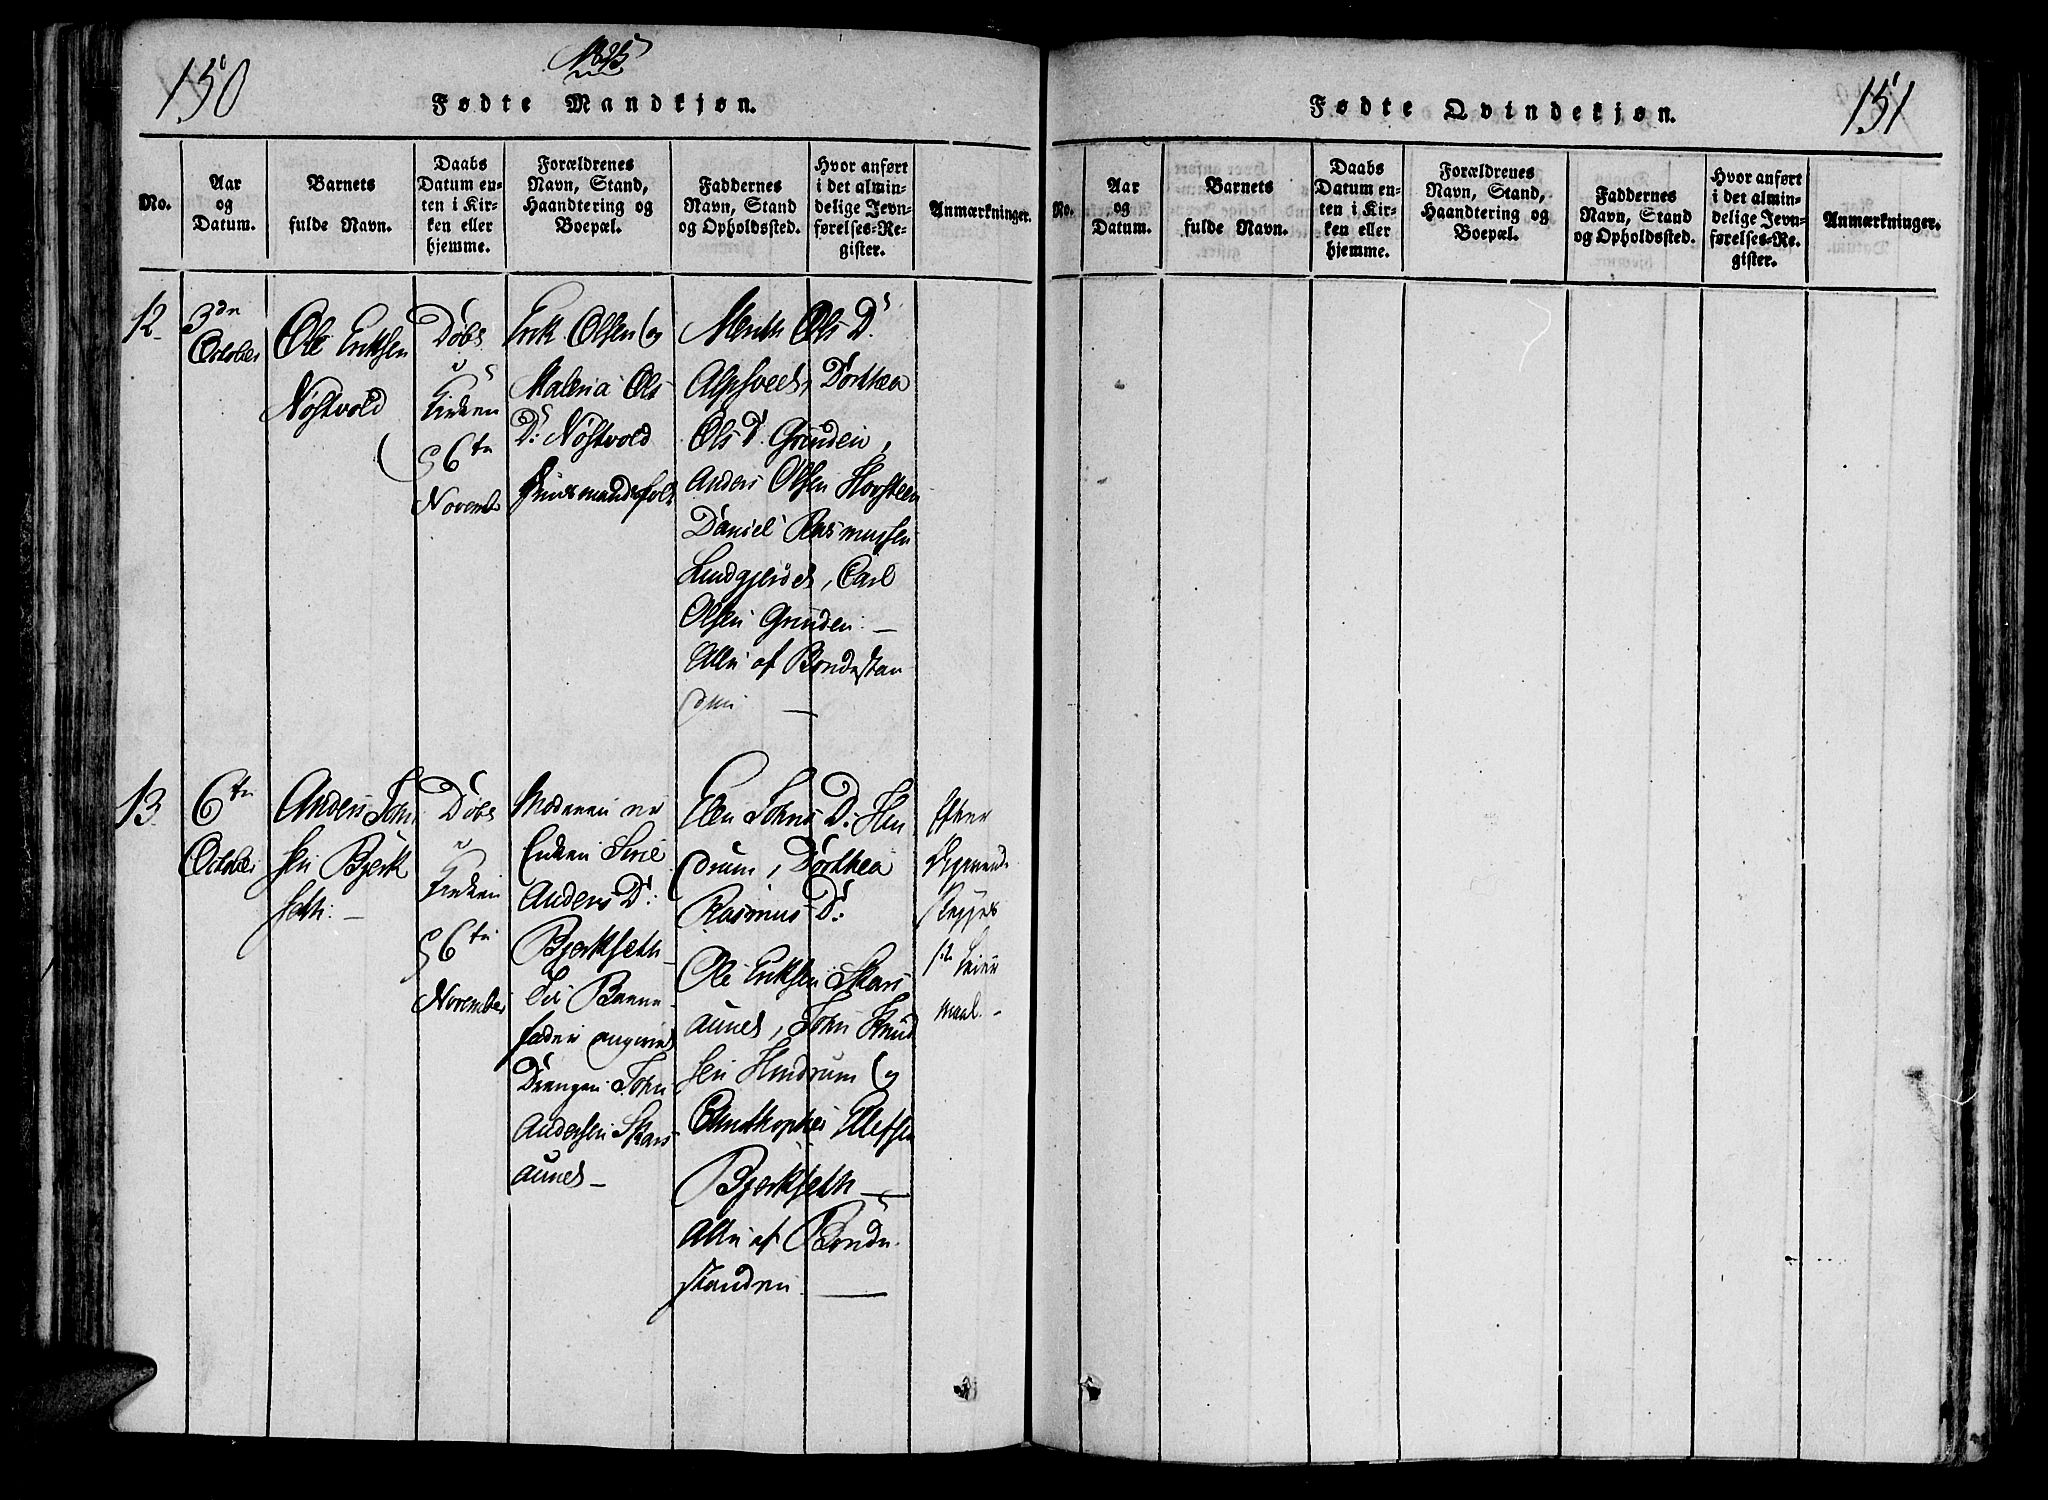 150
1825
Fødte Mandkjøn.
No.
Aar
og
Datum.
Barnets
fulde Navn.
Daabs
Datum en-
ten i Kir-
ken eller
hjemme.
Forældrenes
Navn, Stand,
Haandtering og
Boepæl.
Faddernes
Navn, Stand
og Opholdssted.
Hvor anført
i det almin-
delige Jevn-
førelses-Re-
gister.
Anmærkninger.
12
3de
October
Ole Eriksen
Nøstvold
Døbt
i
Kirken
d 6te
Novemb
Erik Olsen og
Malena Ols
D: Nøstvold
Huusmandsfolk
Merith Ols D.
Dorthea
Ols D. Gruden,
Anders Olsen Hovsteen
Daniel Rasmussen
Lindgjerdet, Carl
Olsen Gruden. —
Alle af Bondestan
den —
13.
6te
October
Anders John
sen Bjerk
seth. —
Døbt
i
Kirken
d 6te
November
Moderen er
Enken Sirie
Anders D:
Bjerkseth —
til Barne
fader angivet
Drengen John
Andersen Skars
aunet —
Elen Johns D: Hen
drum, Dorthea
Rasmus D:
Ole Eriksen Skars
aunet, John Knud
sen Hendrum og
Ellefsen
Bjerkseth —
Alle af Bonde
standen —
Efter
Sigende
1te Leier
maal. —
Fødte Qvindekjøn.
151
No.
Aar
og
Datum.
Barnets
fulde Navn.
Daabs
Datum en-
ten i Kir-
ken eller
hjemme.
Forældrenes
Navn, Stand,
Haandtering og
Boepæl.
Faddernes
Navn, Stand
og Opholdssted.
Hvor anført
i det almin-
delige Jevn-
førelses-Re-
gister.
Anmærkninger.